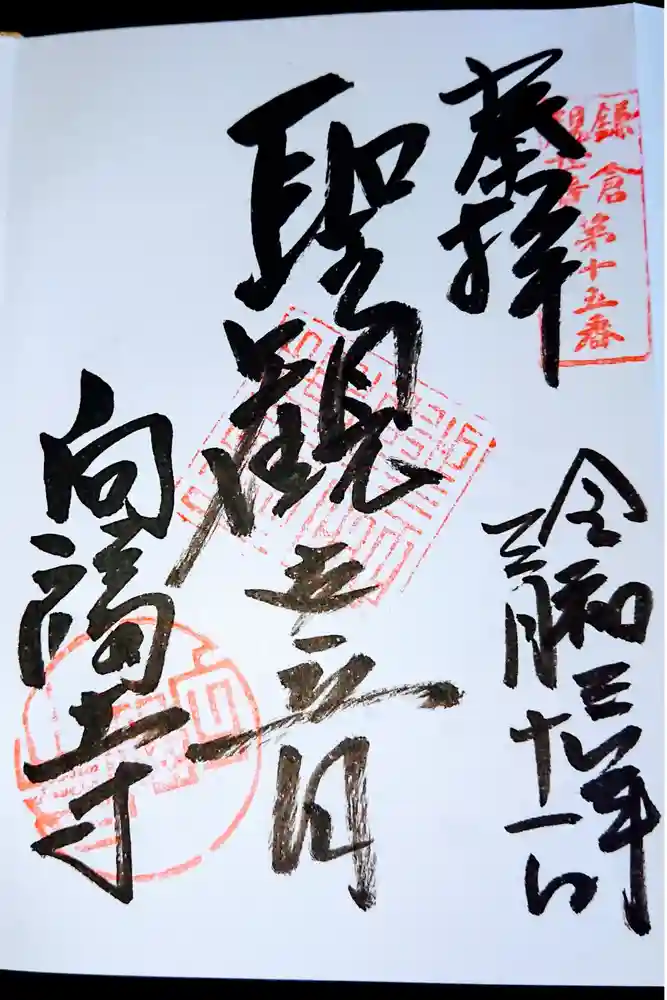 奉拝
鎌倉
観世音
第十五番
令和三年
三月十一日
聖観世音
向福寺